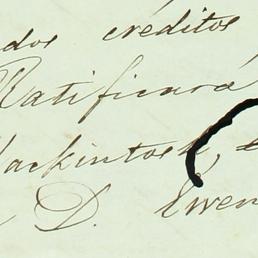 dos créditos
Ratificará
Mackintosh,
D. Ewen